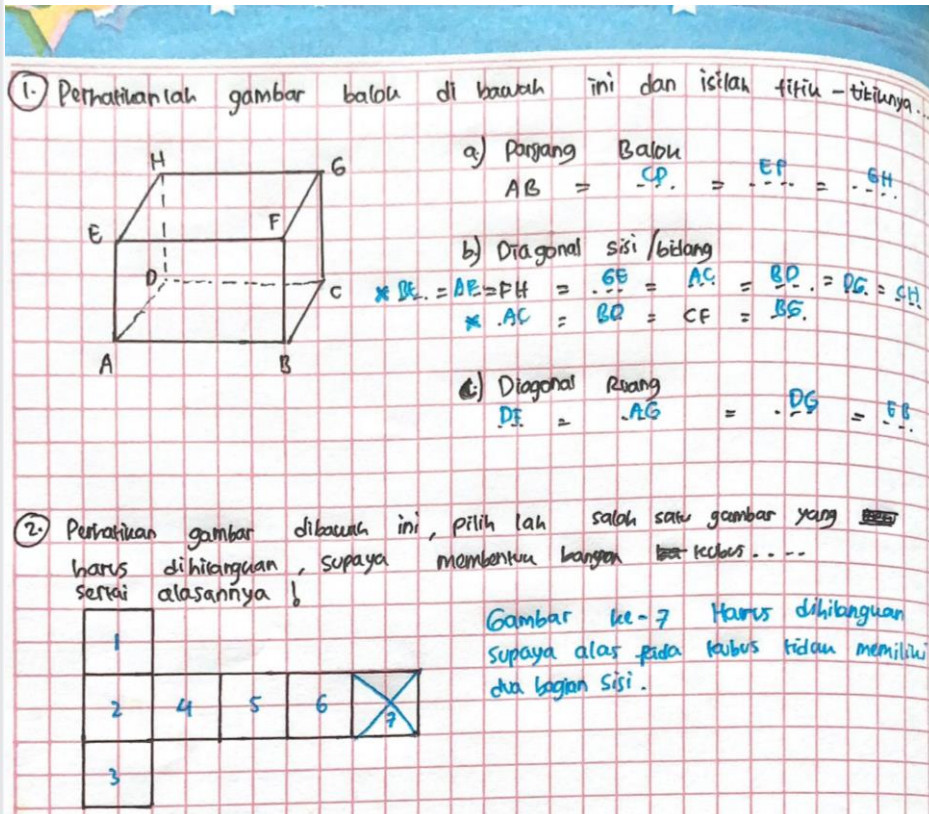 1. Perhatikanlah gambar balok di bawah ini dan isilah titik - titiknya...
H G
E F
D C
A B
a.) Panjang Balok
AB = CD. = EF = GH
b) Diagonal sisi / bidang
* BE. = AE = FH = .GE = AC = BD. = DG. = CH.
* .AC = BD = CF = BG.
c.) Diagonal Ruang
DF = .AG = . DG = EB
2. Perhatikan gambar dibawah ini, pilih lah salah satu gambar yang
harus dihilangkan, supaya membentuk bangun kubus.....
sertai alasannya !
Gambar ke-7 Harus dihilangkan
supaya alas pada kubus tidak memiliki
dua bagian sisi.
1
2 4 5 6 7
3